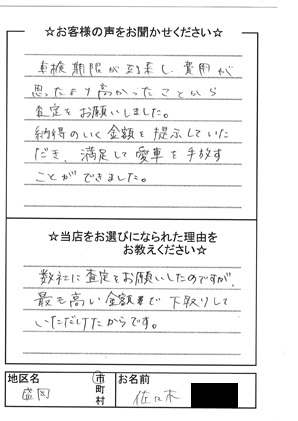 ☆お客様の声をお聞かせください☆
車検期限が到来し、費用が
思ったより高かったことから
査定をお願いしました。
納得のいく金額を提示していた
だき、満足して愛車を手放す
ことができました。
☆当店をお選びになられた理由を
お教えください☆
数社に査定をお願いしたのですが、
最も高い金額で下取りして
いただけたからです。
地区名
市
町
村
お名前
盛岡
佐々木